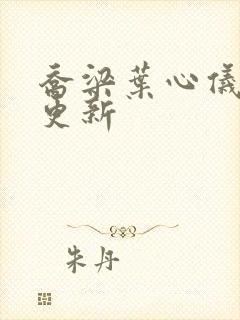 乔梁叶心仪
更新
朱丹